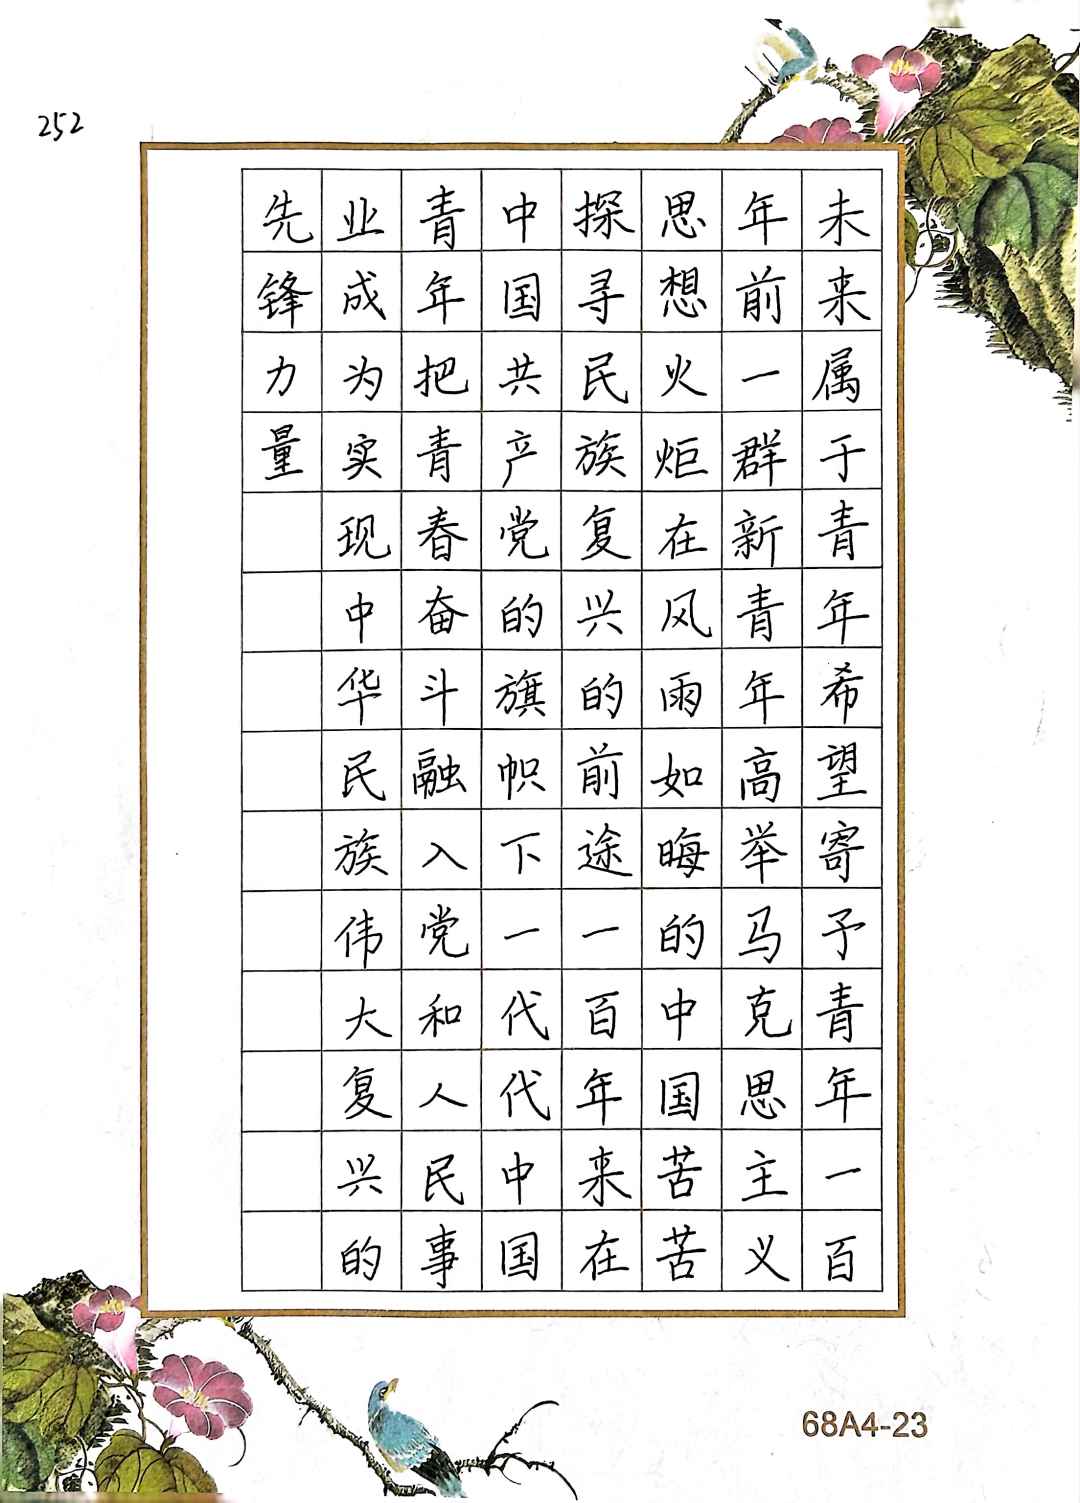 252
未来属于青年希望寄予青年一百
年前一群新青年高举马克思主义
思想火炬在风雨如晦的中国苦苦
探寻民族复兴的前途一百年来在
中国共产党的旗帜下一代代中国
青年把青春奋斗融入党和人民事
业成为实现中华民族伟大复兴的
先锋力量
68A4-23